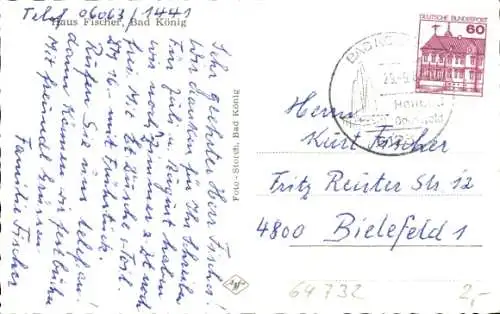 Tel. 06063/1441
Haus Fischer, Bad König
Sehr geehrter Herr Fischer!
Wir danken für Ihr Schreiben
Für Juli u. August haben
wir noch Zimmer z. Zt. noch
frei. Mit Dusche + Toil.
DM 16.- mit Frühstück.
Rufen Sie uns telefon.
dann können wir fest buchen
Mit freundl. Grüssen
Familie Fischer
Foto-Storch, Bad König
DEUTSCHE BUNDESPOST
60
BAD KÖNIG
Herrn
Kurt Fischer
Fritz Reuter Str 12
4800 Bielefeld 1
64732
2,-